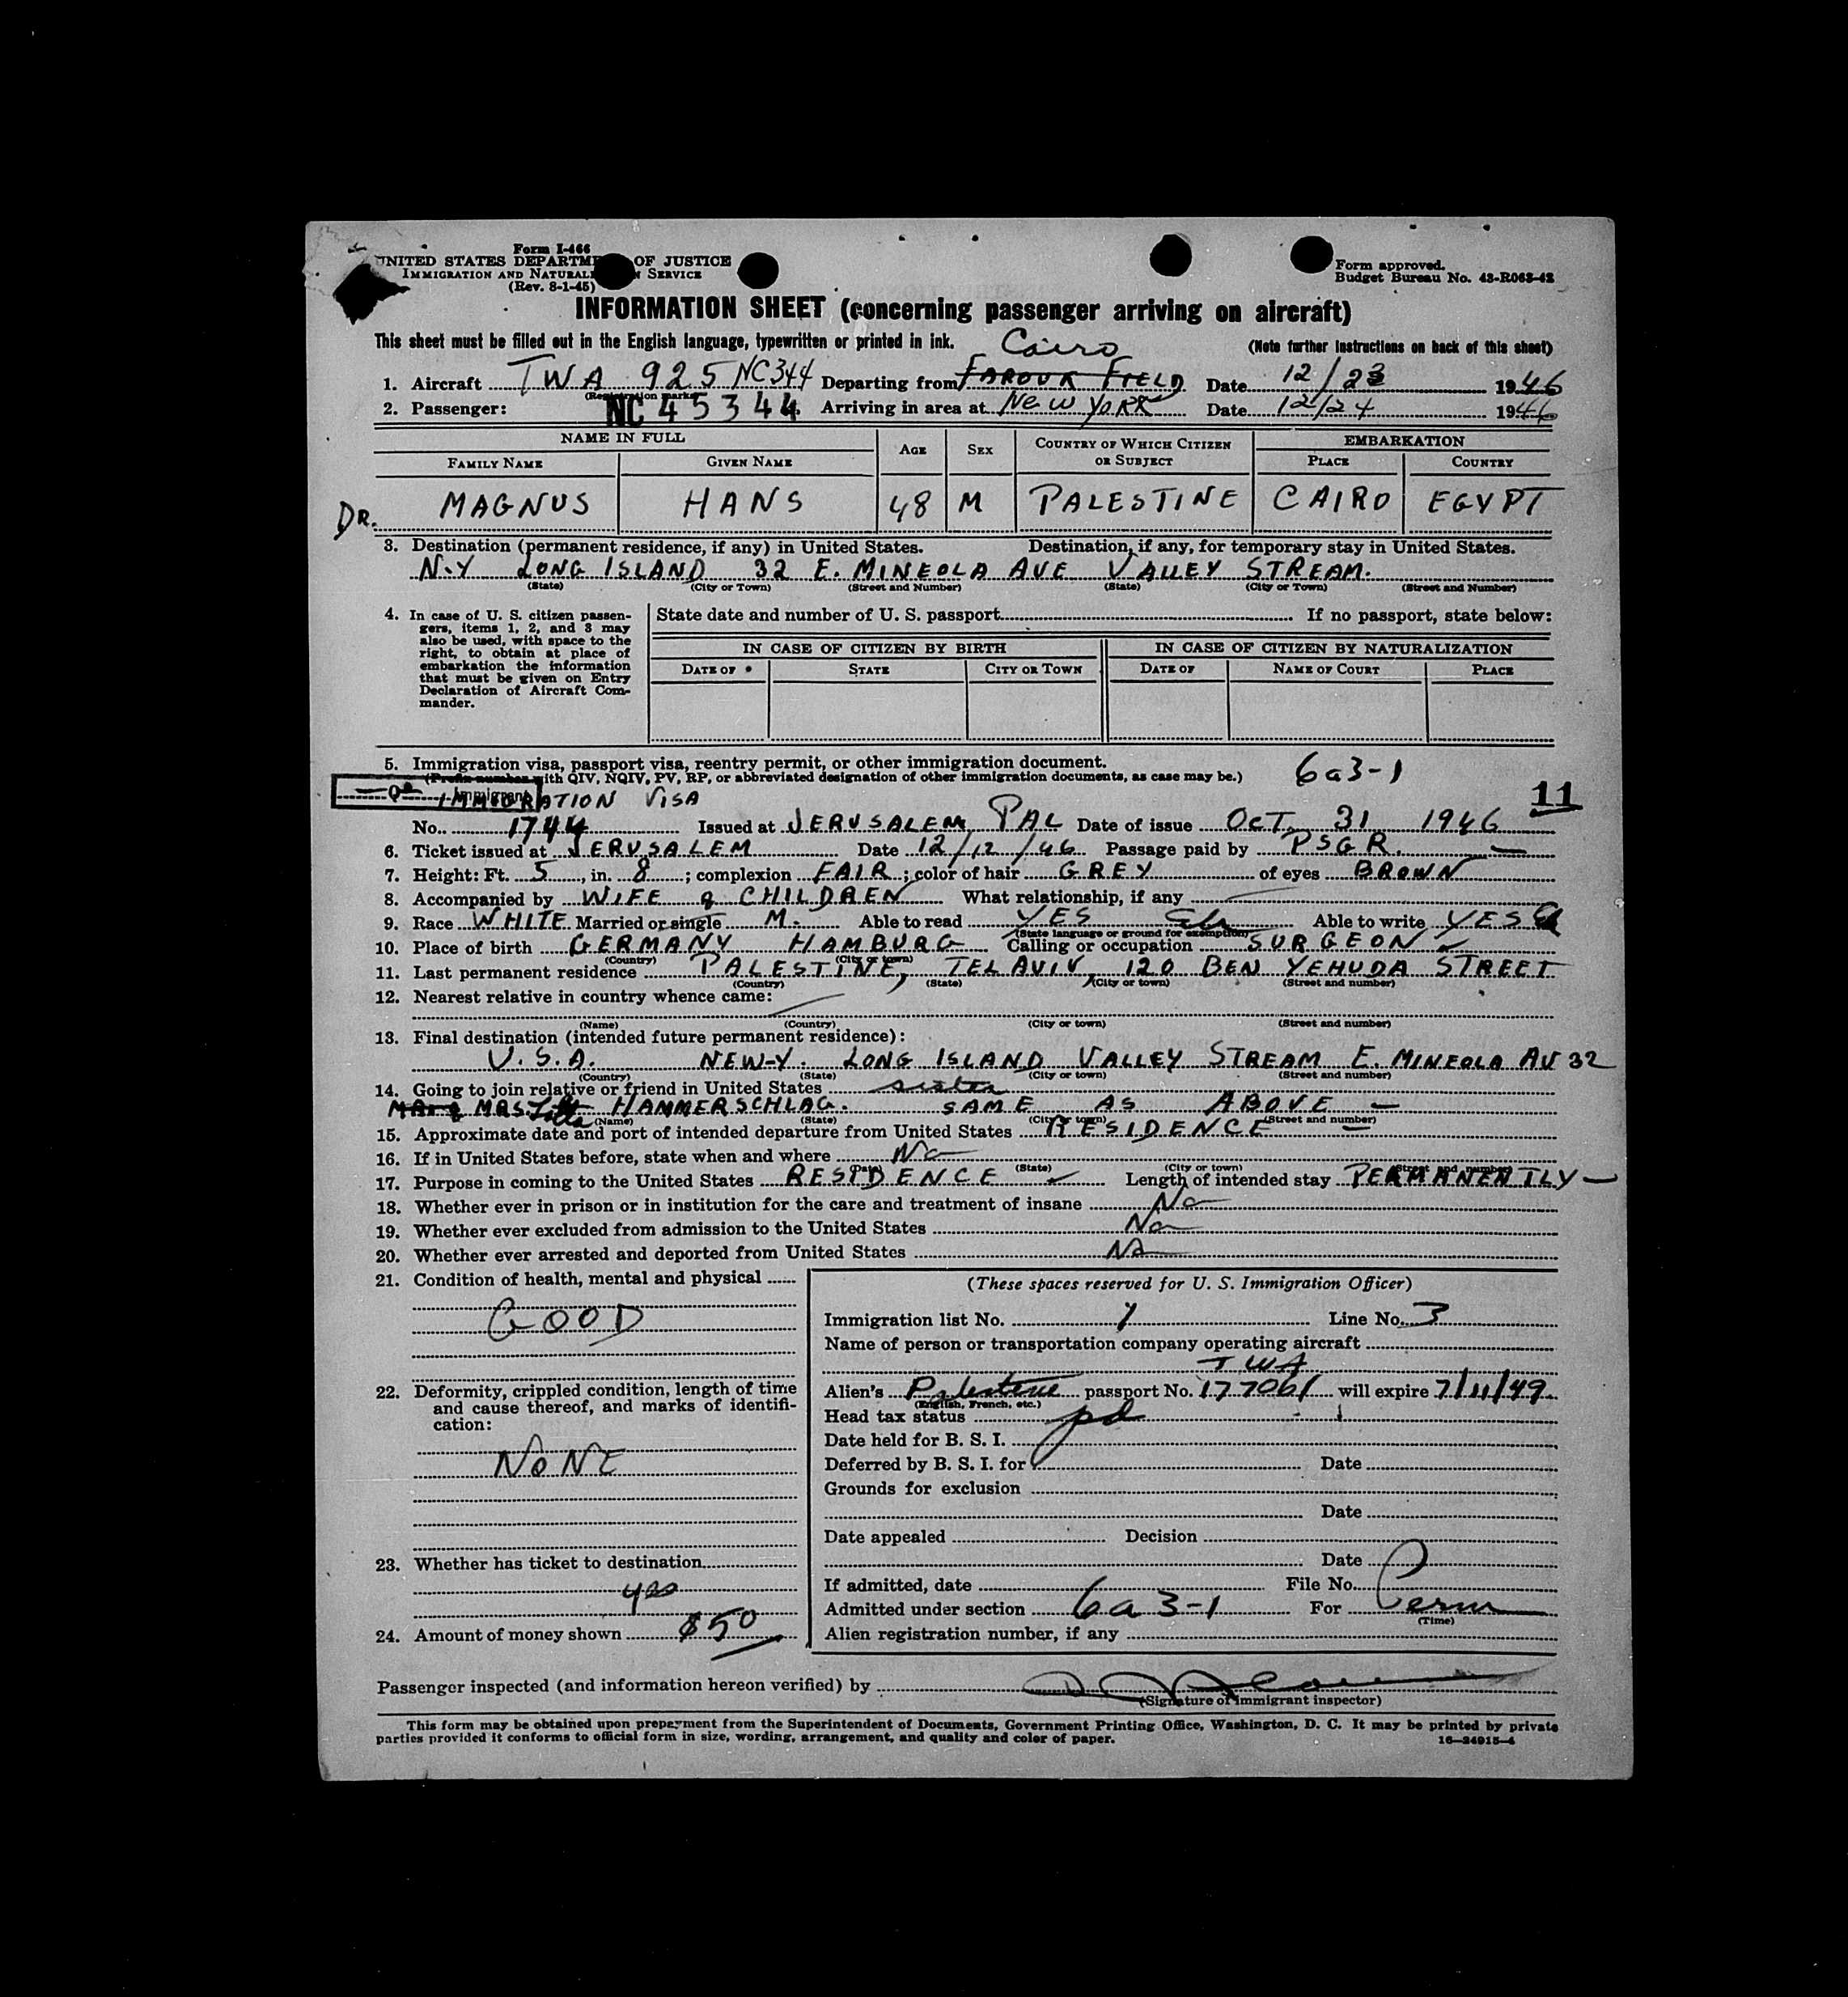 Form I-466
UNITED STATES DEPARTME OF JUSTICE
IMMIGRATION AND NATURALI N SERVICE
(Rev. 8-1-45)
Form approved.
Budget Bureau No. 43-R063-42
INFORMATION SHEET (concerning passenger arriving on aircraft)
This sheet must be filled out in the English language, typewritten or printed in ink.
(Note further instructions on back of this sheet)
Cairo
1. Aircraft TWA 925 NC344 Departing from FAROUK FIELD Date 12/23 1946
(Registration marks)
2. Passenger: NC 45344 Arriving in area at NEW YORK Date 12/24 1946
NAME IN FULL AGE SEX COUNTRY OF WHICH CITIZEN OR SUBJECT EMBARKATION
FAMILY NAME GIVEN NAME PLACE COUNTRY
DR. MAGNUS HANS 48 M PALESTINE CAIRO EGYPT
3. Destination (permanent residence, if any) in United States. Destination, if any, for temporary stay in United States.
N.Y LONG ISLAND 32 E. MINEOLA AVE VALLEY STREAM.
(State) (City or Town) (Street and Number) (State) (City or Town) (Street and Number)
4. In case of U. S. citizen passen-
gers, items 1, 2, and 3 may
also be used, with space to the
right, to obtain at place of
embarkation the information
that must be given on Entry
Declaration of Aircraft Com-
mander.
State date and number of U. S. passport If no passport, state below:
IN CASE OF CITIZEN BY BIRTH IN CASE OF CITIZEN BY NATURALIZATION
DATE OF STATE CITY OR TOWN DATE OF NAME OF COURT PLACE
5. Immigration visa, passport visa, reentry permit, or other immigration document.
(Prefix number with QIV, NQIV, PV, RP, or abbreviated designation of other immigration documents, as case may be.) 6a3-1
Immigrant
IMMIGRATION VISA
11
No. 1744 Issued at JERUSALEM, PAL Date of issue OCT. 31 1946
6. Ticket issued at JERUSALEM Date 12/12/46 Passage paid by PSGR.
7. Height: Ft. 5, in. 8; complexion FAIR; color of hair GREY of eyes BROWN
8. Accompanied by WIFE & CHILDREN What relationship, if any
9. Race WHITE Married or single M. Able to read YES Able to write YES
(State language or ground for exemption)
10. Place of birth GERMANY HAMBURG Calling or occupation SURGEON
(Country) (City or town)
11. Last permanent residence PALESTINE, TEL AVIV, 120 BEN YEHUDA STREET
(Country) (State) (City or town) (Street and number)
12. Nearest relative in country whence came:
(Name) (Country) (City or town) (Street and number)
13. Final destination (intended future permanent residence):
U.S.A. NEW-Y. LONG ISLAND VALLEY STREAM E. MINEOLA AV 32
(Country) (State) (City or town) (Street and number)
14. Going to join relative or friend in United States sister
MRS. HAMMERSCHLAG. SAME AS ABOVE
(Name) (State) (City or town) (Street and number)
15. Approximate date and port of intended departure from United States RESIDENCE
16. If in United States before, state when and where No
(Date) (State) (City or town) (Street and number)
17. Purpose in coming to the United States RESIDENCE Length of intended stay PERMANENTLY
18. Whether ever in prison or in institution for the care and treatment of insane No
19. Whether ever excluded from admission to the United States No
20. Whether ever arrested and deported from United States No
21. Condition of health, mental and physical
GOOD
22. Deformity, crippled condition, length of time
and cause thereof, and marks of identifi-
cation:
NONE
23. Whether has ticket to destination
yes
24. Amount of money shown $50
(These spaces reserved for U. S. Immigration Officer)
Immigration list No. Line No. 3
Name of person or transportation company operating aircraft
TWA
Alien's Palestine passport No. 177061 will expire 7/11/49
(English, French, etc.)
Head tax status pd
Date held for B. S. I.
Deferred by B. S. I. for Date
Grounds for exclusion
Date
Date appealed Decision
Date
If admitted, date File No.
Admitted under section 6a3-1 For Perm
(Time)
Alien registration number, if any
Passenger inspected (and information hereon verified) by
(Signature of immigrant inspector)
This form may be obtained upon prepayment from the Superintendent of Documents, Government Printing Office, Washington, D. C. It may be printed by private
parties provided it conforms to official form in size, wording, arrangement, and quality and color of paper. 16—24915-4